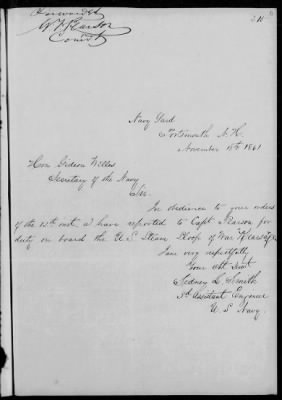 Forwarded
Comdt
211
Navy Yard
Portsmouth N.H.
November 18th 1861
Hon. Gideon Welles
Secretary of the Navy
Sir
In obedience to your orders
of the 15th inst. I have reported to Capt. Pearson for
duty on board the U.S. Steam Sloop of War Kearsage
I am very respectfully
Your Obt. Servt.
Sidney L. Smith
3d Assistant Engineer
U.S. Navy.